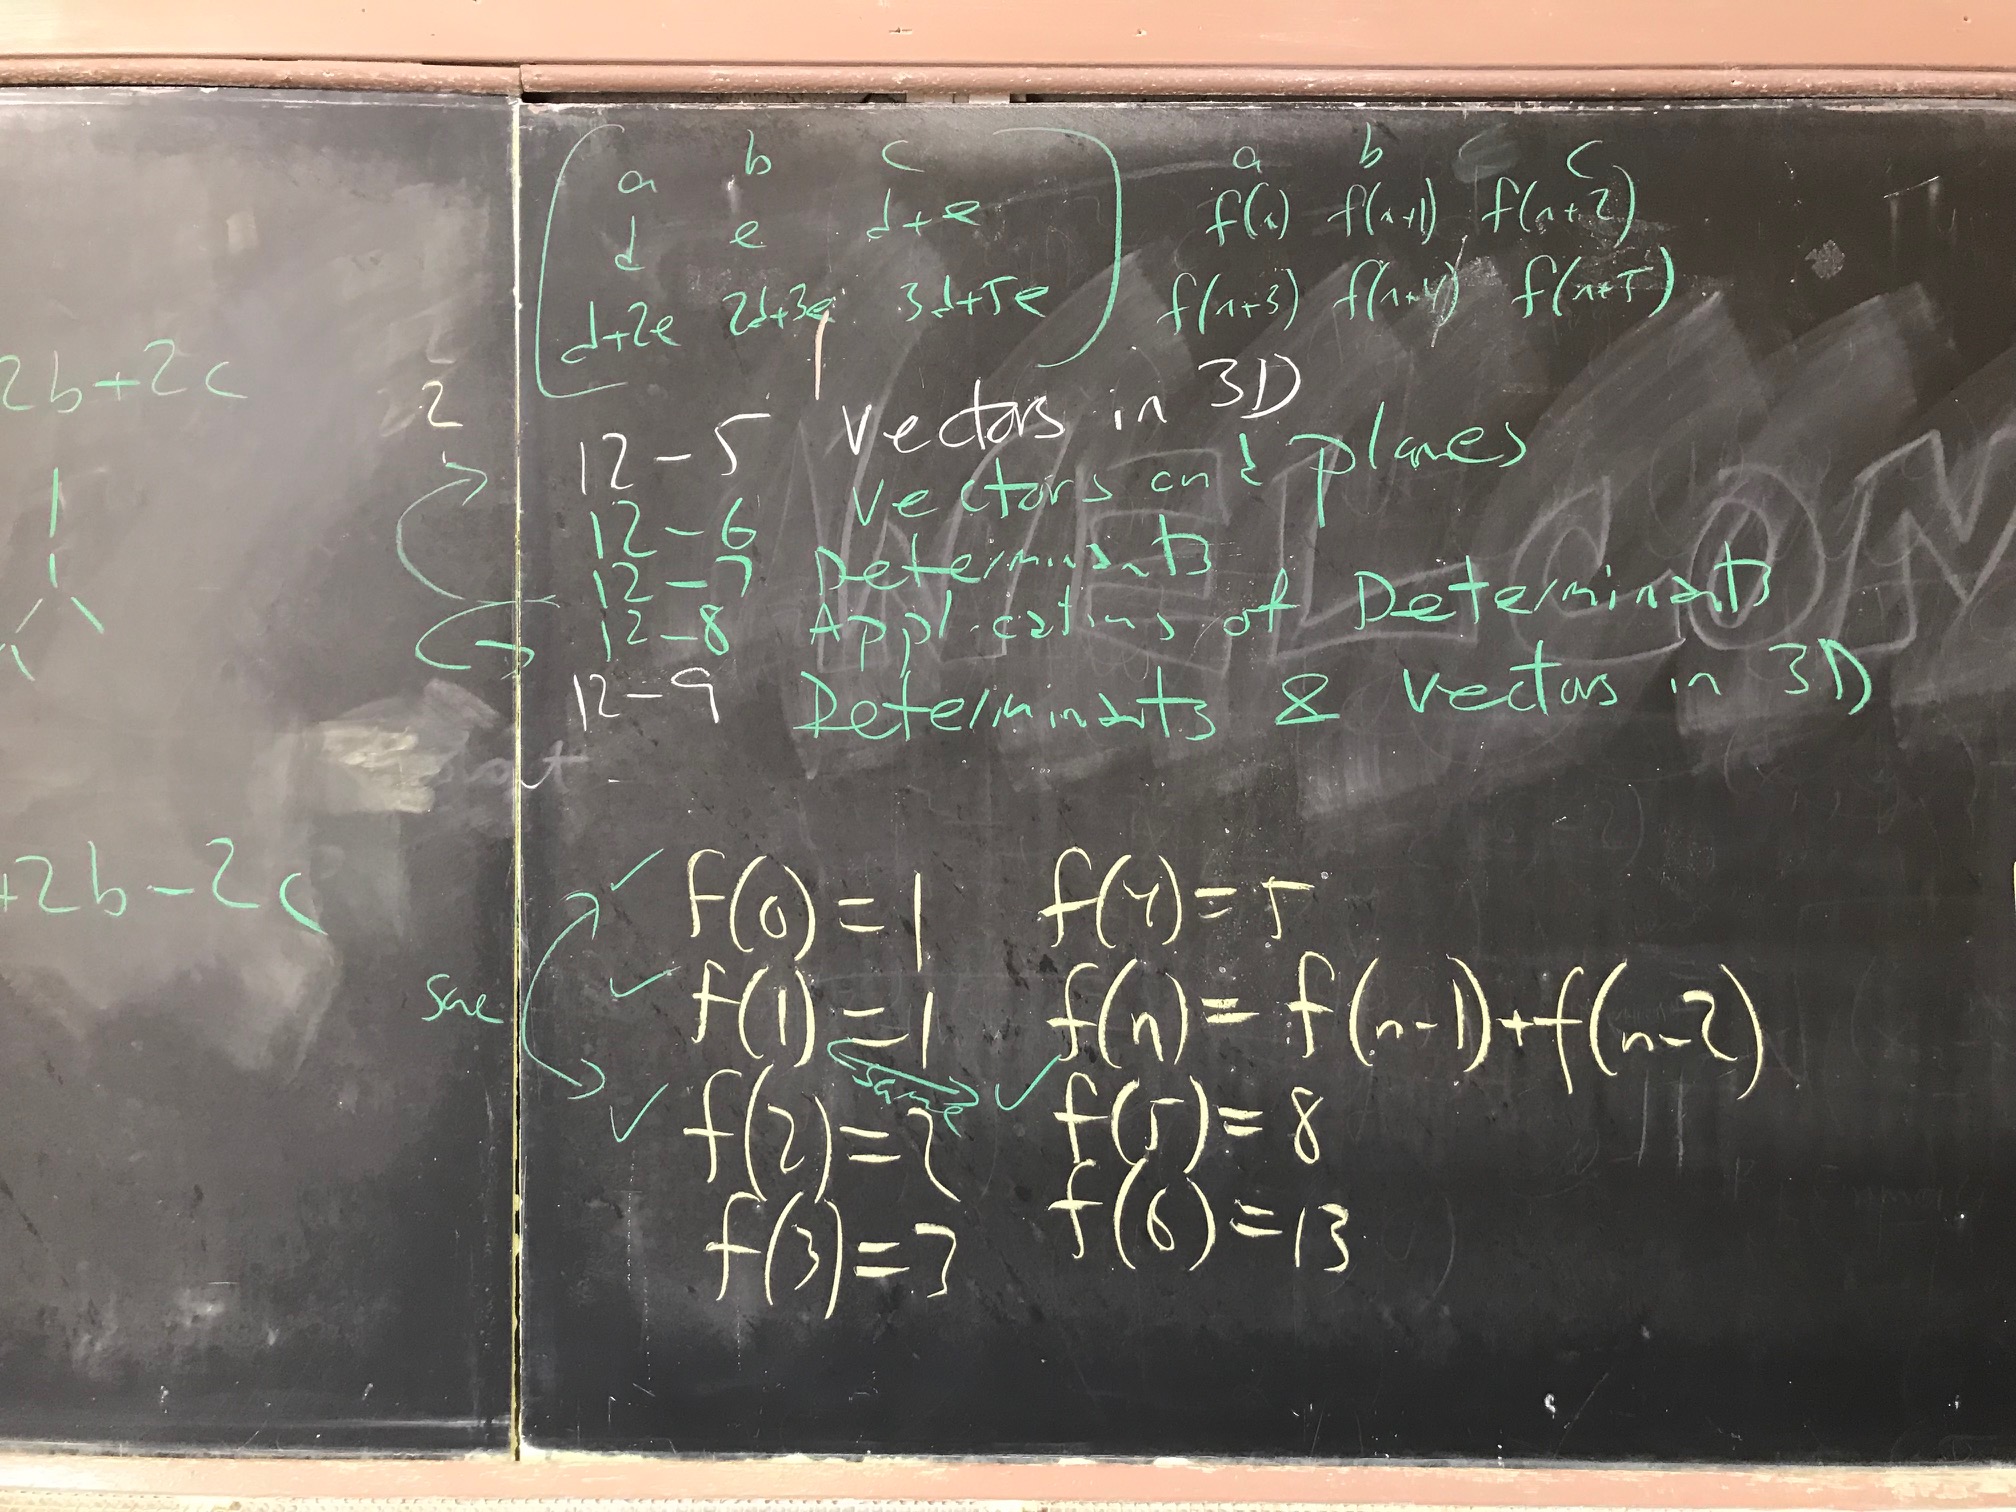 2b+2c
+2b-2c
2
a b c
d e d+e
d+2e 2d+3e 3d+5e
a b c c
f(n) f(n+1) f(n+2)
f(n+3) f(n+4) f(n+5)
12-5 Vectors in 3D
12-6 Vectors and planes
12-7 Determinants
12-8 Applications of Determinants
12-9 Determinants & Vectors in 3D
WELCOM
f(0)=1 f(4)=5
f(1)=1 f(n)=f(n-1)+f(n-2)
same
f(2)=2 f(5)=8
f(3)=3 f(6)=13